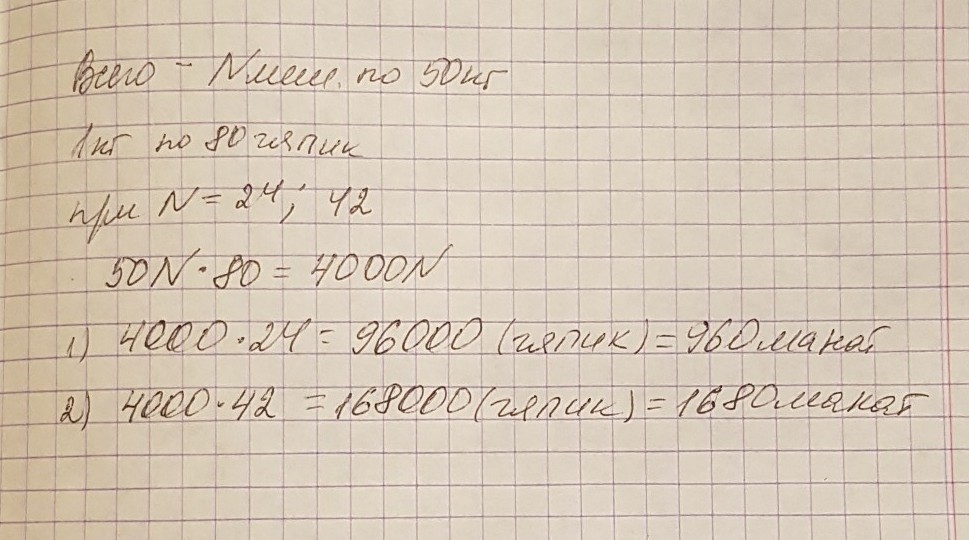 Всего - N меш. по 50 кг
1 кг по 80 гяпик
при N = 24; 42
50N · 80 = 4000N
1) 4000 · 24 = 96000 (гяпик) = 960 манат
2) 4000 · 42 = 168000 (гяпик) = 1680 манат